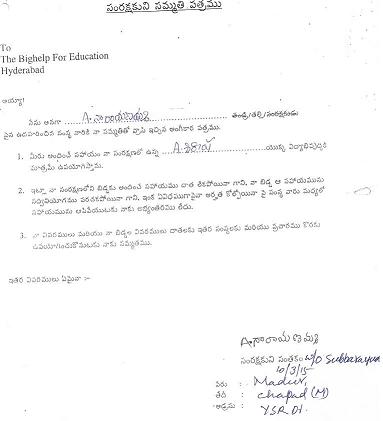 సంరక్షకుని సమ్మతి పత్రము
To
The Bighelp For Education
Hyderabad
అయ్యా!
నేను అనగా A. నారాయణమ్మ తండ్రి/తల్లి/సంరక్షకుడు
పైన ఉదహరించిన సంస్థ వారికి నా సమ్మతితో వ్రాసి ఇచ్చిన అంగీకార పత్రము.
1. మీరు అందించే సహాయం నా సంరక్షణలో ఉన్న A. యొక్క విద్యాభివృద్ధికి
మాత్రమే ఉపయోగిస్తాను.
2. ఇట్లా నా సంరక్షణలోని బిడ్డకు అందించే సహాయము దాత లేకపోయినా గాని, నా బిడ్డ ఆ సహాయమును
సద్వినియోగము పరచకపోయినా గాని, ఇంకే విధముగానైనా అర్హత కోల్పోయినా పై సంస్థ వారు మధ్యలో
సహాయమును ఆపివేయుటకు నాకు అభ్యంతరము లేదు.
3. నా వివరములు మరియు నా బిడ్డల వివరములు దాతలకు ఇతర సంస్థలకు మరియు ప్రచారము కొరకు
ఉపయోగించుకొనుటకు నాకు సమ్మతము.
ఇతర వివరములు ఏమైనా :-
A. నారాయణమ్మ
సంరక్షకుని సంతకం W/O Subbarayudu
10/3/15
పేరు : Madur,
తేది : Chapad (M)
అడ్రసు : YSR Dt.